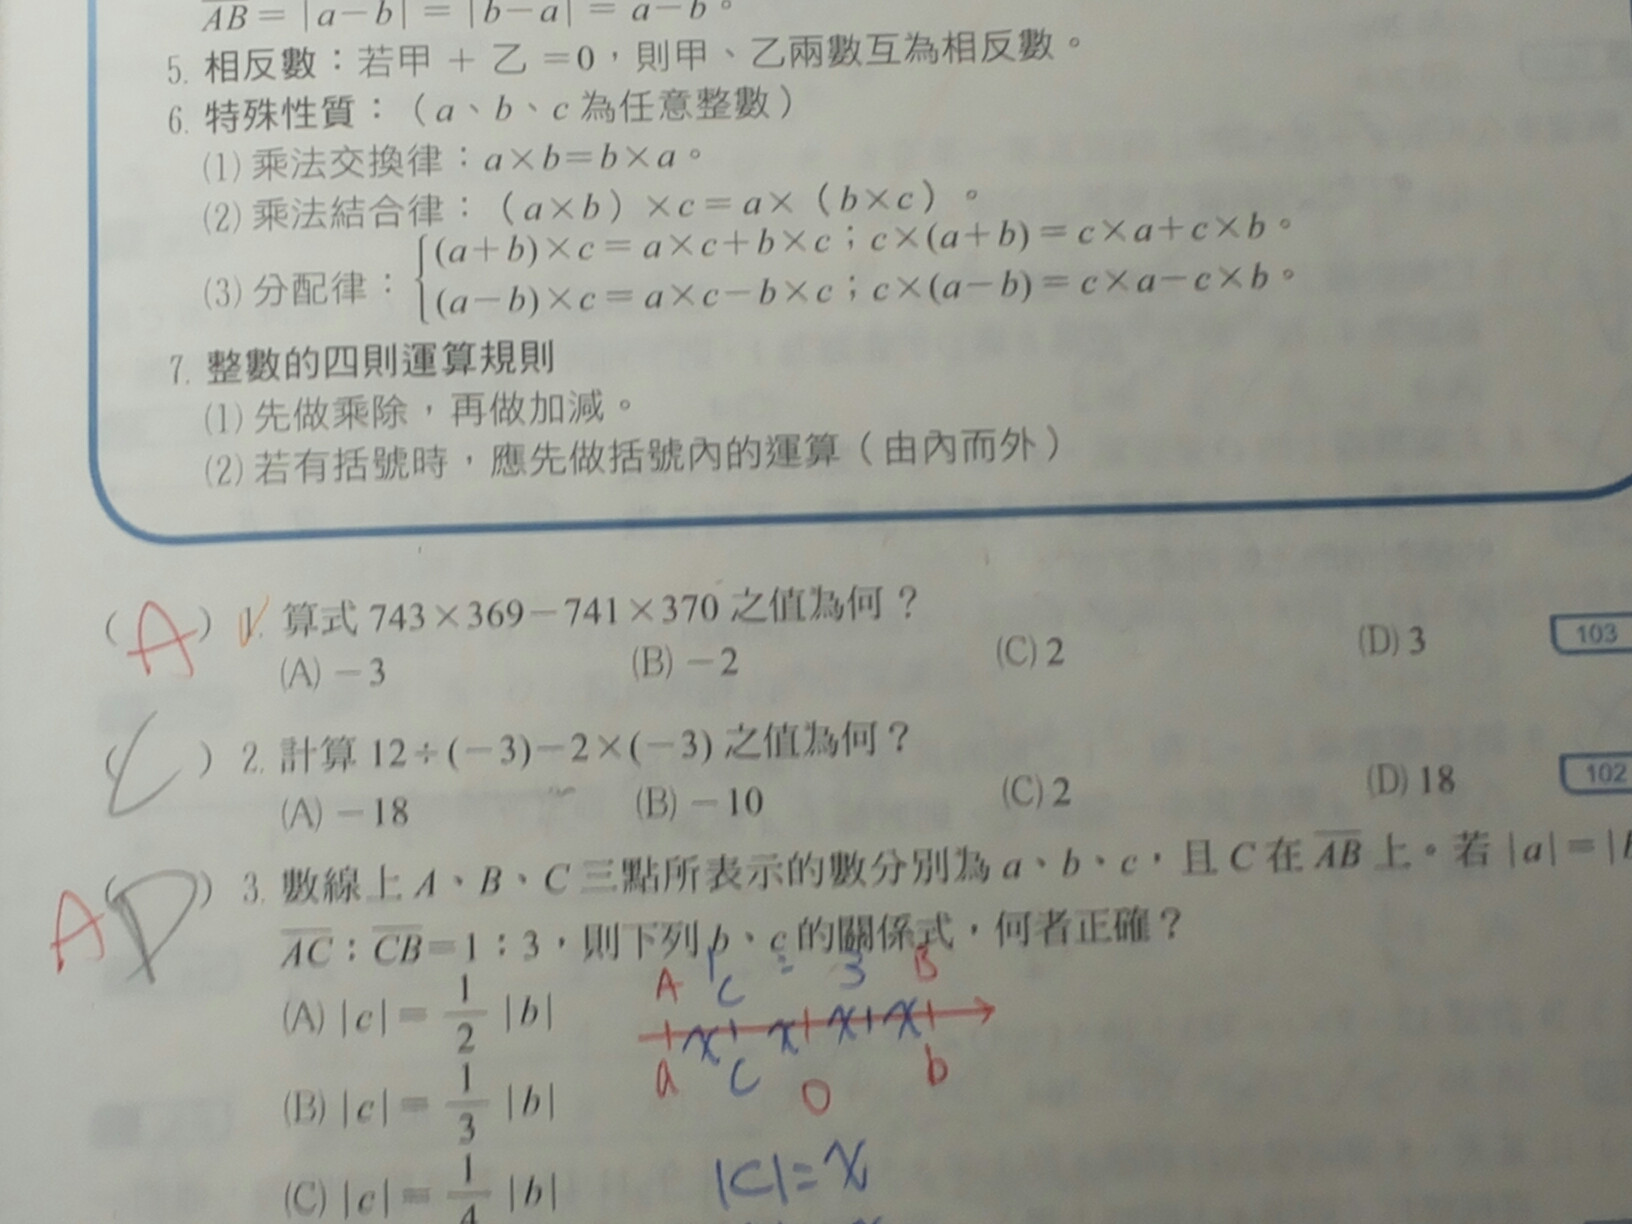 AB = |a−b| = |b−a| = a−b。
5. 相反數：若甲 + 乙 =0，則甲、乙兩數互為相反數。
6. 特殊性質：（a、b、c 為任意整數）
(1) 乘法交換律：a×b=b×a。
(2) 乘法結合律：（a×b）×c=a×（b×c）。
(a+b)×c=a×c+b×c；c×(a+b)=c×a+c×b。
(3) 分配律：
(a−b)×c=a×c−b×c；c×(a−b)=c×a−c×b。
7. 整數的四則運算規則
(1) 先做乘除，再做加減。
(2) 若有括號時，應先做括號內的運算（由內而外）
( A ) 1. 算式 743×369−741×370 之值為何？
(A) −3 (B) −2 (C) 2 (D) 3 103
( C ) 2. 計算 12÷(−3)−2×(−3) 之值為何？
(A) −18 (B) −10 (C) 2 (D) 18 102
A ( D ) 3. 數線上 A、B、C 三點所表示的數分別為 a、b、c，且 C 在 AB 上。若 |a|=|b
AC：CB=1：3，則下列 b、c 的關係式，何者正確？
1 : 3
A C B
(A) |c|= 1/2 |b|
x x x x
a C O b
(B) |c|= 1/3 |b|
|C|=x
(C) |c|= 1/4 |b|